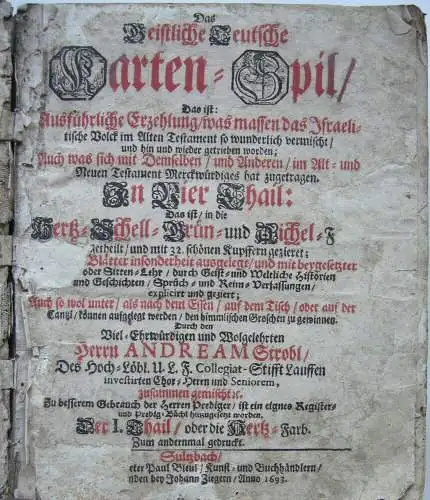 Das
Geistliche Teutsche
Karten-Spil/
Das ist:
Ausführliche Erzehlung/was massen das Israeli-
tische Volck im Alten Testament so wunderlich vermischt/
und hin und wieder getrieben worden;
Auch was sich mit Demselben/und Anderen/im Alt- und
Neuen Testament Merckwürdiges hat zugetragen.
In Vier Thail:
Das ist/in die
Hertz-Schell-Grün-und Aichel-F
getheilt/und mit 32. schönen Kupffern gezieret;
Blätter insonderheit ausgelegt/und mit beygesetzter
oder Sitten-Lehr/durch Geist-und Weltliche Historien
und Geschichten/Sprüch-und Reim-Verfassungen/
explicirt und geziert;
Auch so wol unter/als nach dem Essen/auf dem Tisch/oder auf der
Cantzl/können aufgelegt werden/den himmlischen Groschen zu gewinnen.
Durch den
Viel-Ehrwürdigen und Wolgelehrten
Herrn ANDREAM Strobl/
Des Hoch-Löbl. U. L. F. Collegiat-Stifft Lauffen
investirten Chor-Herrn und Seniorem,
zusammen gemischt ꝛc.
Zu besserem Gebrauch der Herren Prediger/ist ein eignes Register-
und Predig-Büchl hinzugesetzt worden.
Der I. Thail/oder die Hertz-Farb.
Zum andernmal gedruckt.
Sultzbach/
Paul Kunst-und Buchhändlern/
bey Johann Ziegern/Anno 1693.